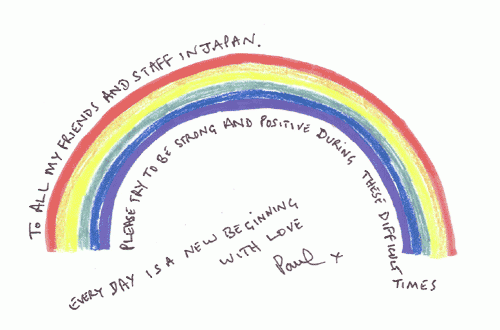 TO ALL MY FRIENDS AND STAFF IN JAPAN.
PLEASE TRY TO BE STRONG AND POSITIVE DURING THESE DIFFICULT TIMES
EVERY DAY IS A NEW BEGINNING
WITH LOVE
Paul x